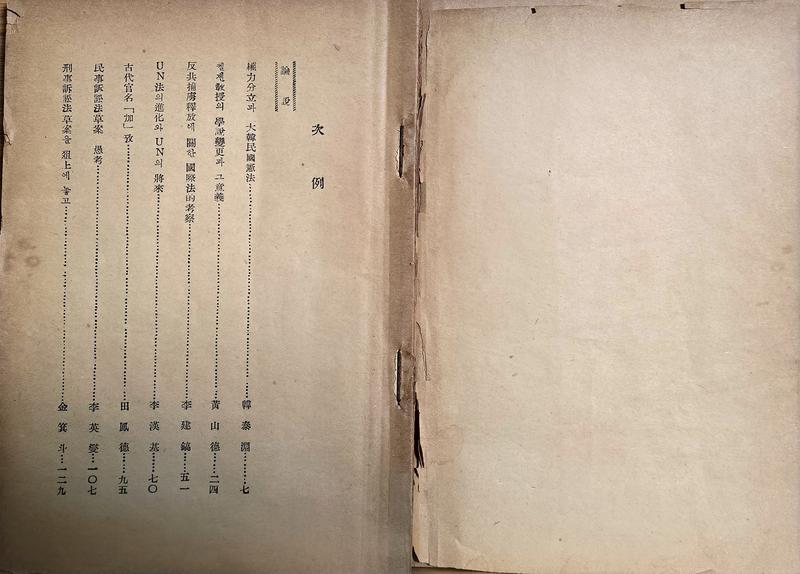 次例
論說
權力分立과 大韓民國憲法……七 韓泰淵
켈젠敎授의 學說變更과 그 意義……黃山德……二四
反共捕虜釋放에 關한 國際法的考察……李建鎬……五一
UN法의進化와 UN의 將來……李漢基……七〇
古代官名「加」一攷……田鳳德……九五
民事訴訟法草案 愚考……李英燮……一〇七
刑事訴訟法草案을 俎上에 놓고……金箕斗……一二九